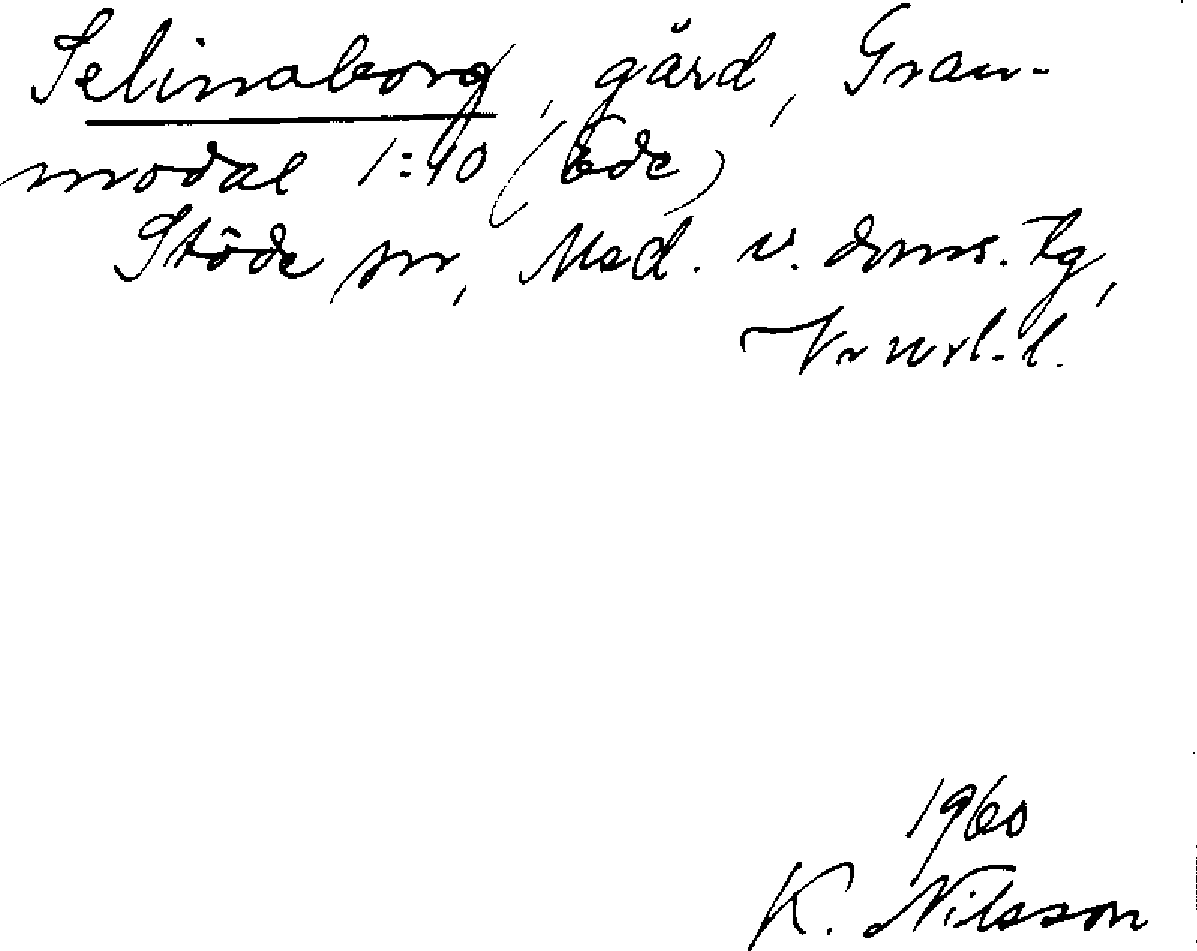 Selinaborg, gård, Gran-
modal 1:40 (Öde)
Stöde sn, Med. v. doms. tg,
Vrnrl. l.
1960
K. Nilsson